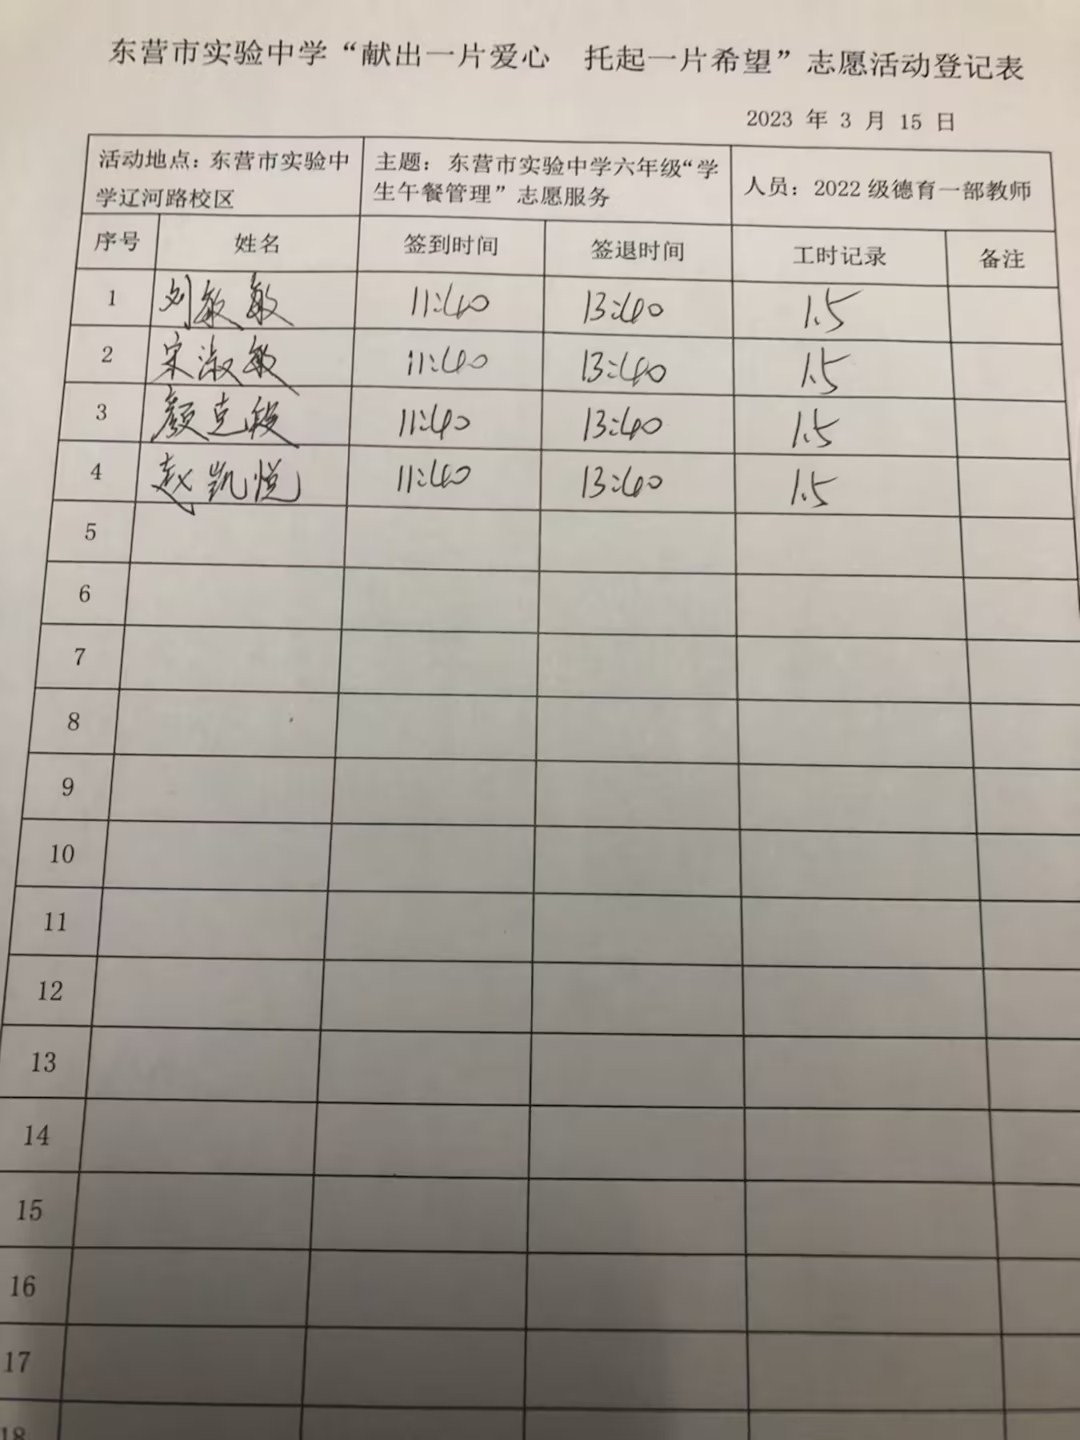 东营市实验中学“献出一片爱心 托起一片希望”志愿活动登记表
2023 年 3 月 15 日
活动地点：东营市实验中
学辽河路校区
主题：东营市实验中学六年级“学
生午餐管理”志愿服务
人员：2022 级德育一部教师
序号 姓名 签到时间 签退时间 工时记录 备注
1 刘敏敏 11:40 13:40 1.5
2 宋淑敏 11:40 13:40 1.5
3 颜克 11:40 13:40 1.5
4 赵凯悦 11:40 13:40 1.5
5
6
7
8
9
10
11
12
13
14
15
16
17
18